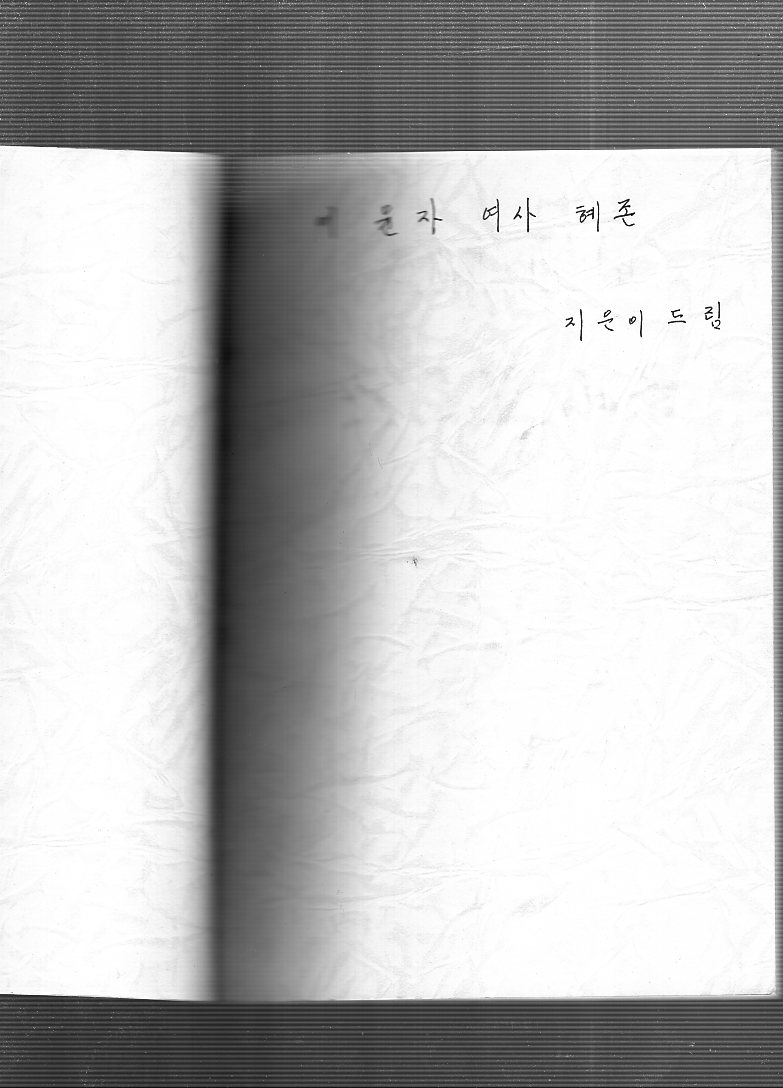 윤자 여사 혜존
지은이 드림